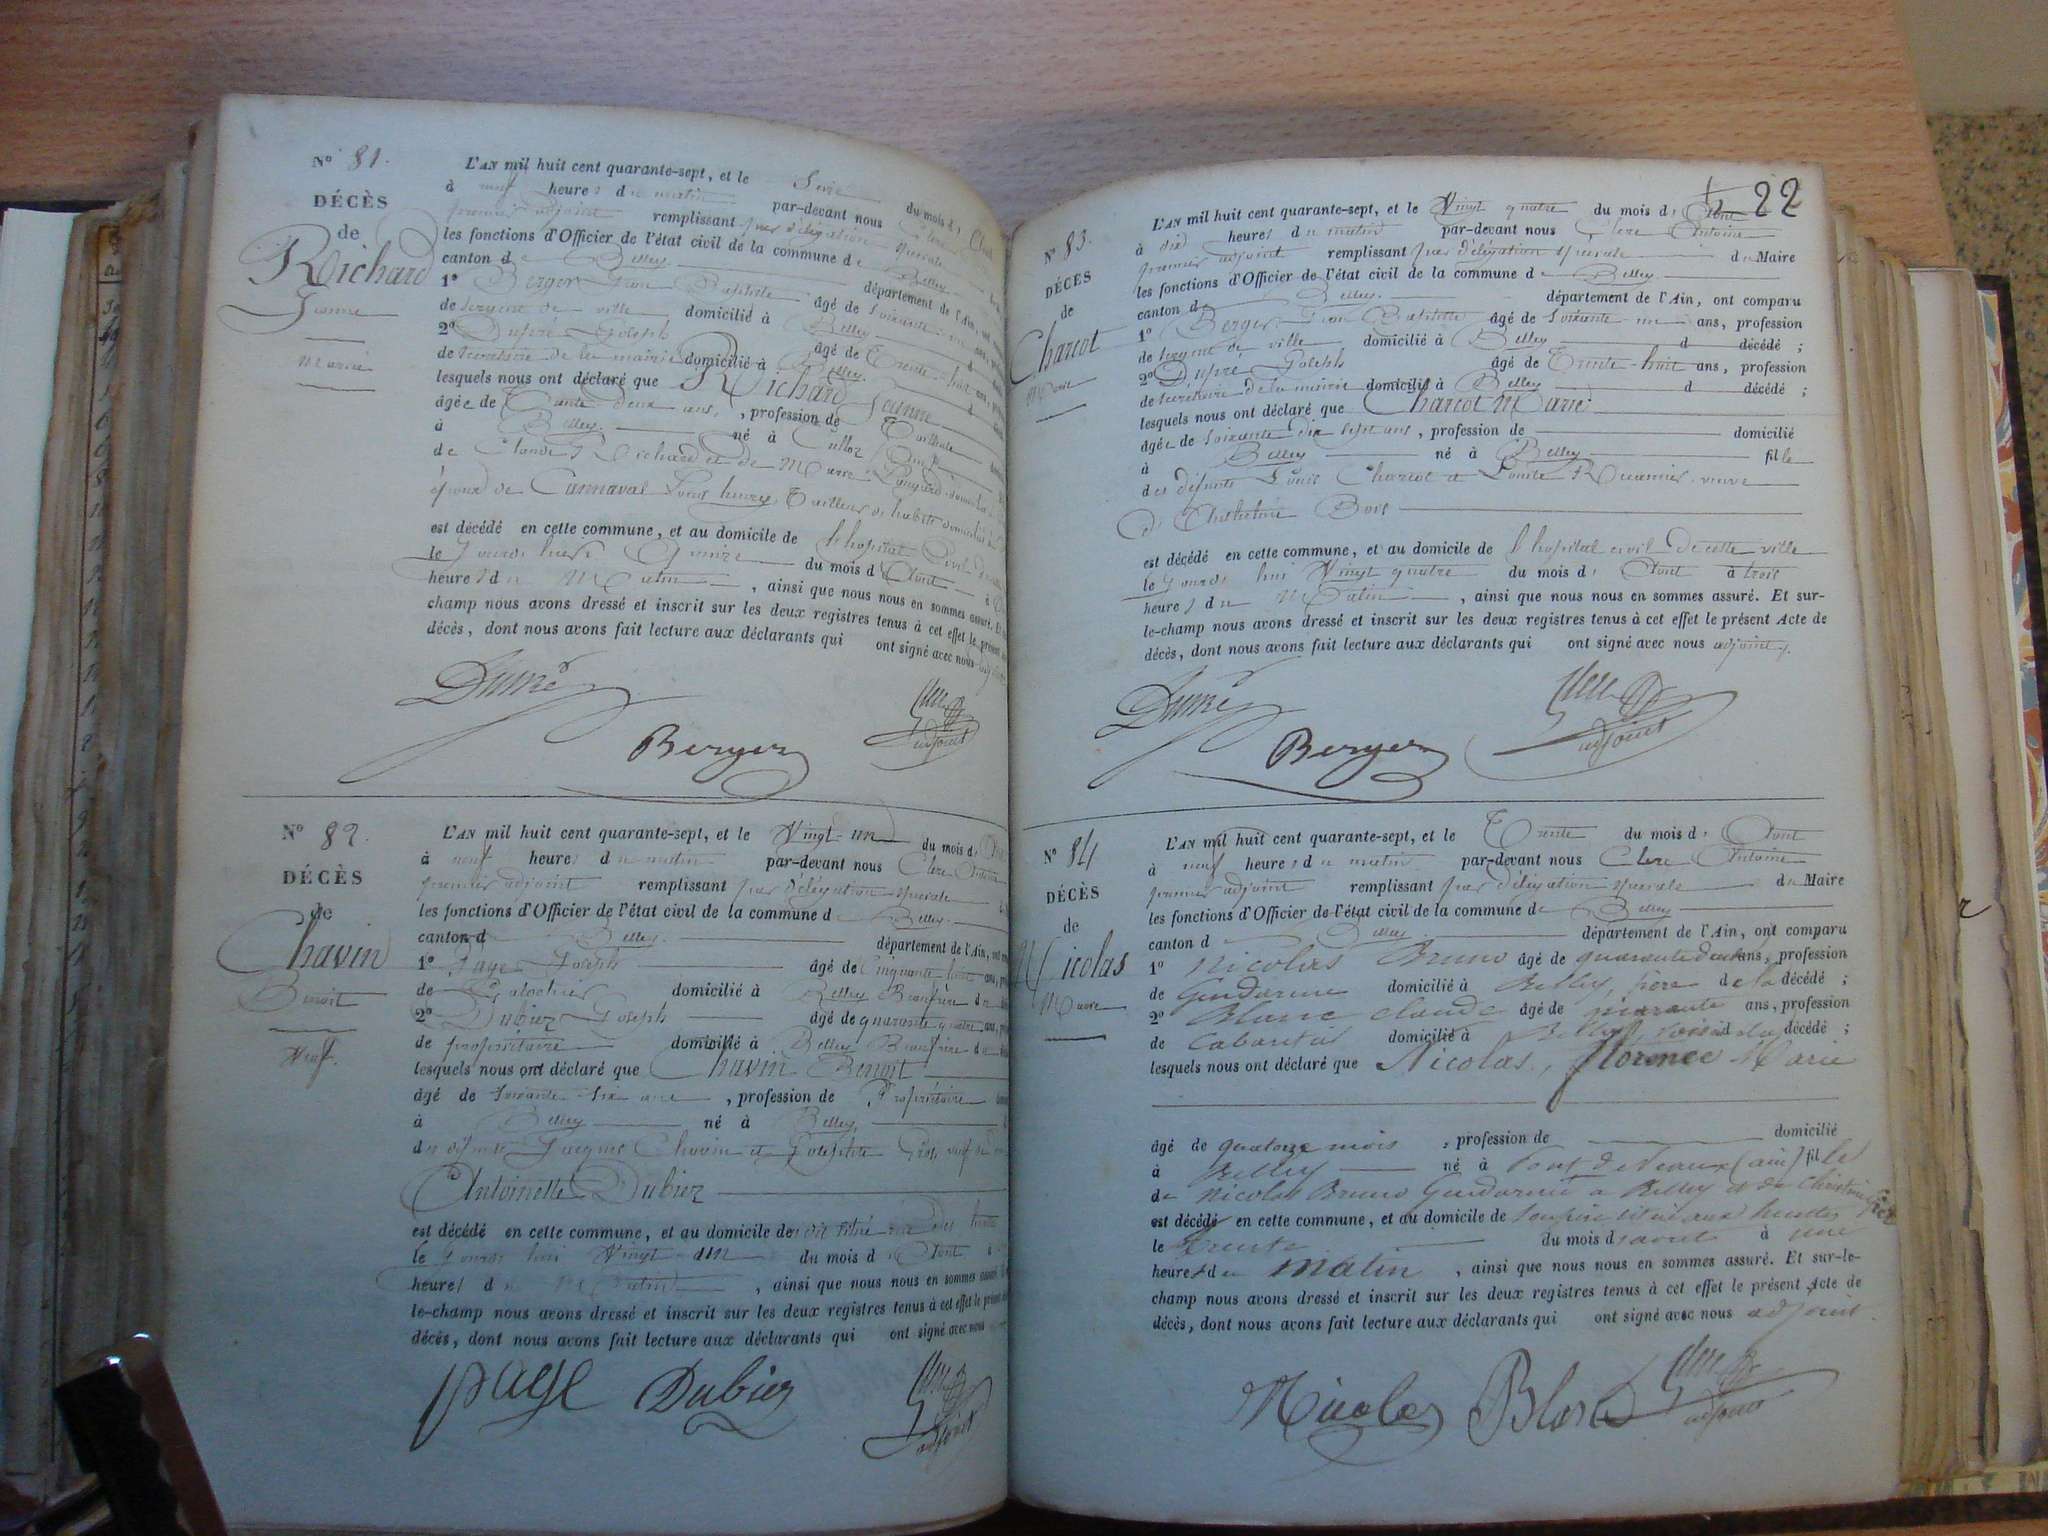 N° 81.
DÉCÈS
de
Richard
Jeanne
mariée
L'AN mil huit cent quarante-sept, et le Seize du mois d'
à neuf heures du matin par-devant nous Clerc
premier adjoint remplissant par délégation spéciale
les fonctions d'Officier de l'état civil de la commune de Belley
canton de Belley département de l'Ain, ont
1° Berger Jean Baptiste âgé de soixante-un ans,
de sergent de ville domicilié à Belley
2° Dupré Joseph âgé de Trente-huit ans,
de secrétaire de la mairie domicilié à Belley
lesquels nous ont déclaré que Richard Jeanne
âgée de deux ans, profession de
à Belley né à Culloz
de Claude Richard et de Marie
épouse de Cannaval Louis henry Tailleur d'habits domicilié
est décédé en cette commune, et au domicile de l'hopital Civil
le Jourd'hui du mois d'Aout à
heures du Matin, ainsi que nous nous en sommes assuré. Et
champ nous avons dressé et inscrit sur les deux registres tenus à cet effet le présent
décès, dont nous avons fait lecture aux déclarants qui ont signé avec nous
Dupré
Berger
Clerc
adjoint
N° 82.
DÉCÈS
de
Chavin
Benoit
Veuf.
L'AN mil huit cent quarante-sept, et le Vingt-un du mois d'
à neuf heures du matin par-devant nous Clerc Antoine
premier adjoint remplissant par délégation spéciale
les fonctions d'Officier de l'état civil de la commune de Belley
canton d Belley département de l'Ain, ont
1° Page Joseph âgé de Cinquante huit ans,
de Galochier domicilié à Belley Beaufrère du
2° Dubiez Joseph âgé de quarante quatre ans,
de propriétaire domicilié à Belley Beaufrère du
lesquels nous ont déclaré que Chavin Benoit
âgé de soixante-six ans, profession de Propriétaire
à Belley né à Belley,
des défunts Jacques Chavin et Josephte Gros, veuf de
Antoinette Dubiez
est décédé en cette commune, et au domicile de
le Jourd'hui Vingt un du mois d Aout à
heures du Matin, ainsi que nous nous en sommes assuré.
le-champ nous avons dressé et inscrit sur les deux registres tenus à cet effet le présent
décès, dont nous avons fait lecture aux déclarants qui ont signé avec nous
page Dubiez
Clerc
adjoint
22
N° 83.
DÉCÈS
de
Charcot
Marie
L'AN mil huit cent quarante-sept, et le Vingt quatre du mois d'Aout
à dix heures du matin par-devant nous Clerc Antoine
premier adjoint remplissant par délégation spéciale du Maire
les fonctions d'Officier de l'état civil de la commune de Belley
canton de Belley. département de l'Ain, ont comparu
1° Berger Jean Baptiste âgé de soixante-un ans, profession
de sergent de ville domicilié à Belley d décédé ;
2° Dupré Joseph âgé de Trente-huit ans, profession
de secrétaire de la mairie domicilié à Belley d décédé ;
lesquels nous ont déclaré que Charcot Marie
âgée de soixante dix sept ans, profession de domicilié
à Belley né à Belley fille
des défunts Louis Charcot et Louise Recamier veuve
d'Anthelme Bois
est décédé en cette commune, et au domicile de l'hopital civil de cette ville
le Jourd'hui Vingt quatre du mois d'Aout à trois
heures du Matin, ainsi que nous nous en sommes assuré. Et sur-
le-champ nous avons dressé et inscrit sur les deux registres tenus à cet effet le présent Acte de
décès, dont nous avons fait lecture aux déclarants qui ont signé avec nous adjoint.
Dupré
Berger
Clerc
adjoint
N° 84
DÉCÈS
de
Nicolas
Marie
L'AN mil huit cent quarante-sept, et le Trente du mois d'Aout
à neuf heures du matin par-devant nous Clerc Antoine
premier adjoint remplissant par délégation spéciale du Maire
les fonctions d'Officier de l'état civil de la commune de Belley
canton d Belley département de l'Ain, ont comparu
1° Nicolas Bruno âgé de quarante deux ans, profession
de Gendarme domicilié à Belley, père de la décédé ;
2° Blanc claude âgé de quarante ans, profession
de Cabaretier domicilié à Belley, voisin de la décédé ;
lesquels nous ont déclaré que Nicolas, florence Marie
âgé de quatorze mois, profession de domicilié
à Belley né à Pont de Veaux (ain) fille
de Nicolas Bruno Gendarme à Belley et de Christine
est décédé en cette commune, et au domicile de son père situé aux
le trente du mois d'aout à une
heures du matin, ainsi que nous nous en sommes assuré. Et sur-le-
champ nous avons dressé et inscrit sur les deux registres tenus à cet effet le présent Acte de
décès, dont nous avons fait lecture aux déclarants qui ont signé avec nous adjoint.
Nicolas Blanc
Clerc
adjoint